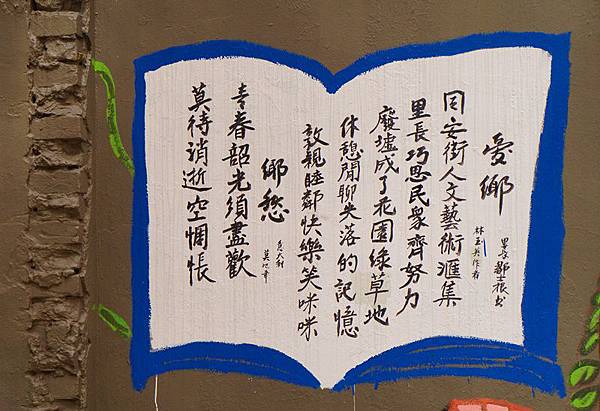 愛鄉
里長鄒士根書
作者
同安街人文藝術滙集
里長巧思民眾齊努力
廢墟成了花園綠草地
休憩閒聊失落的記憶
敦親睦鄰快樂笑咪咪
鄉愁
青春韶光須盡歡
莫待消逝空惆悵